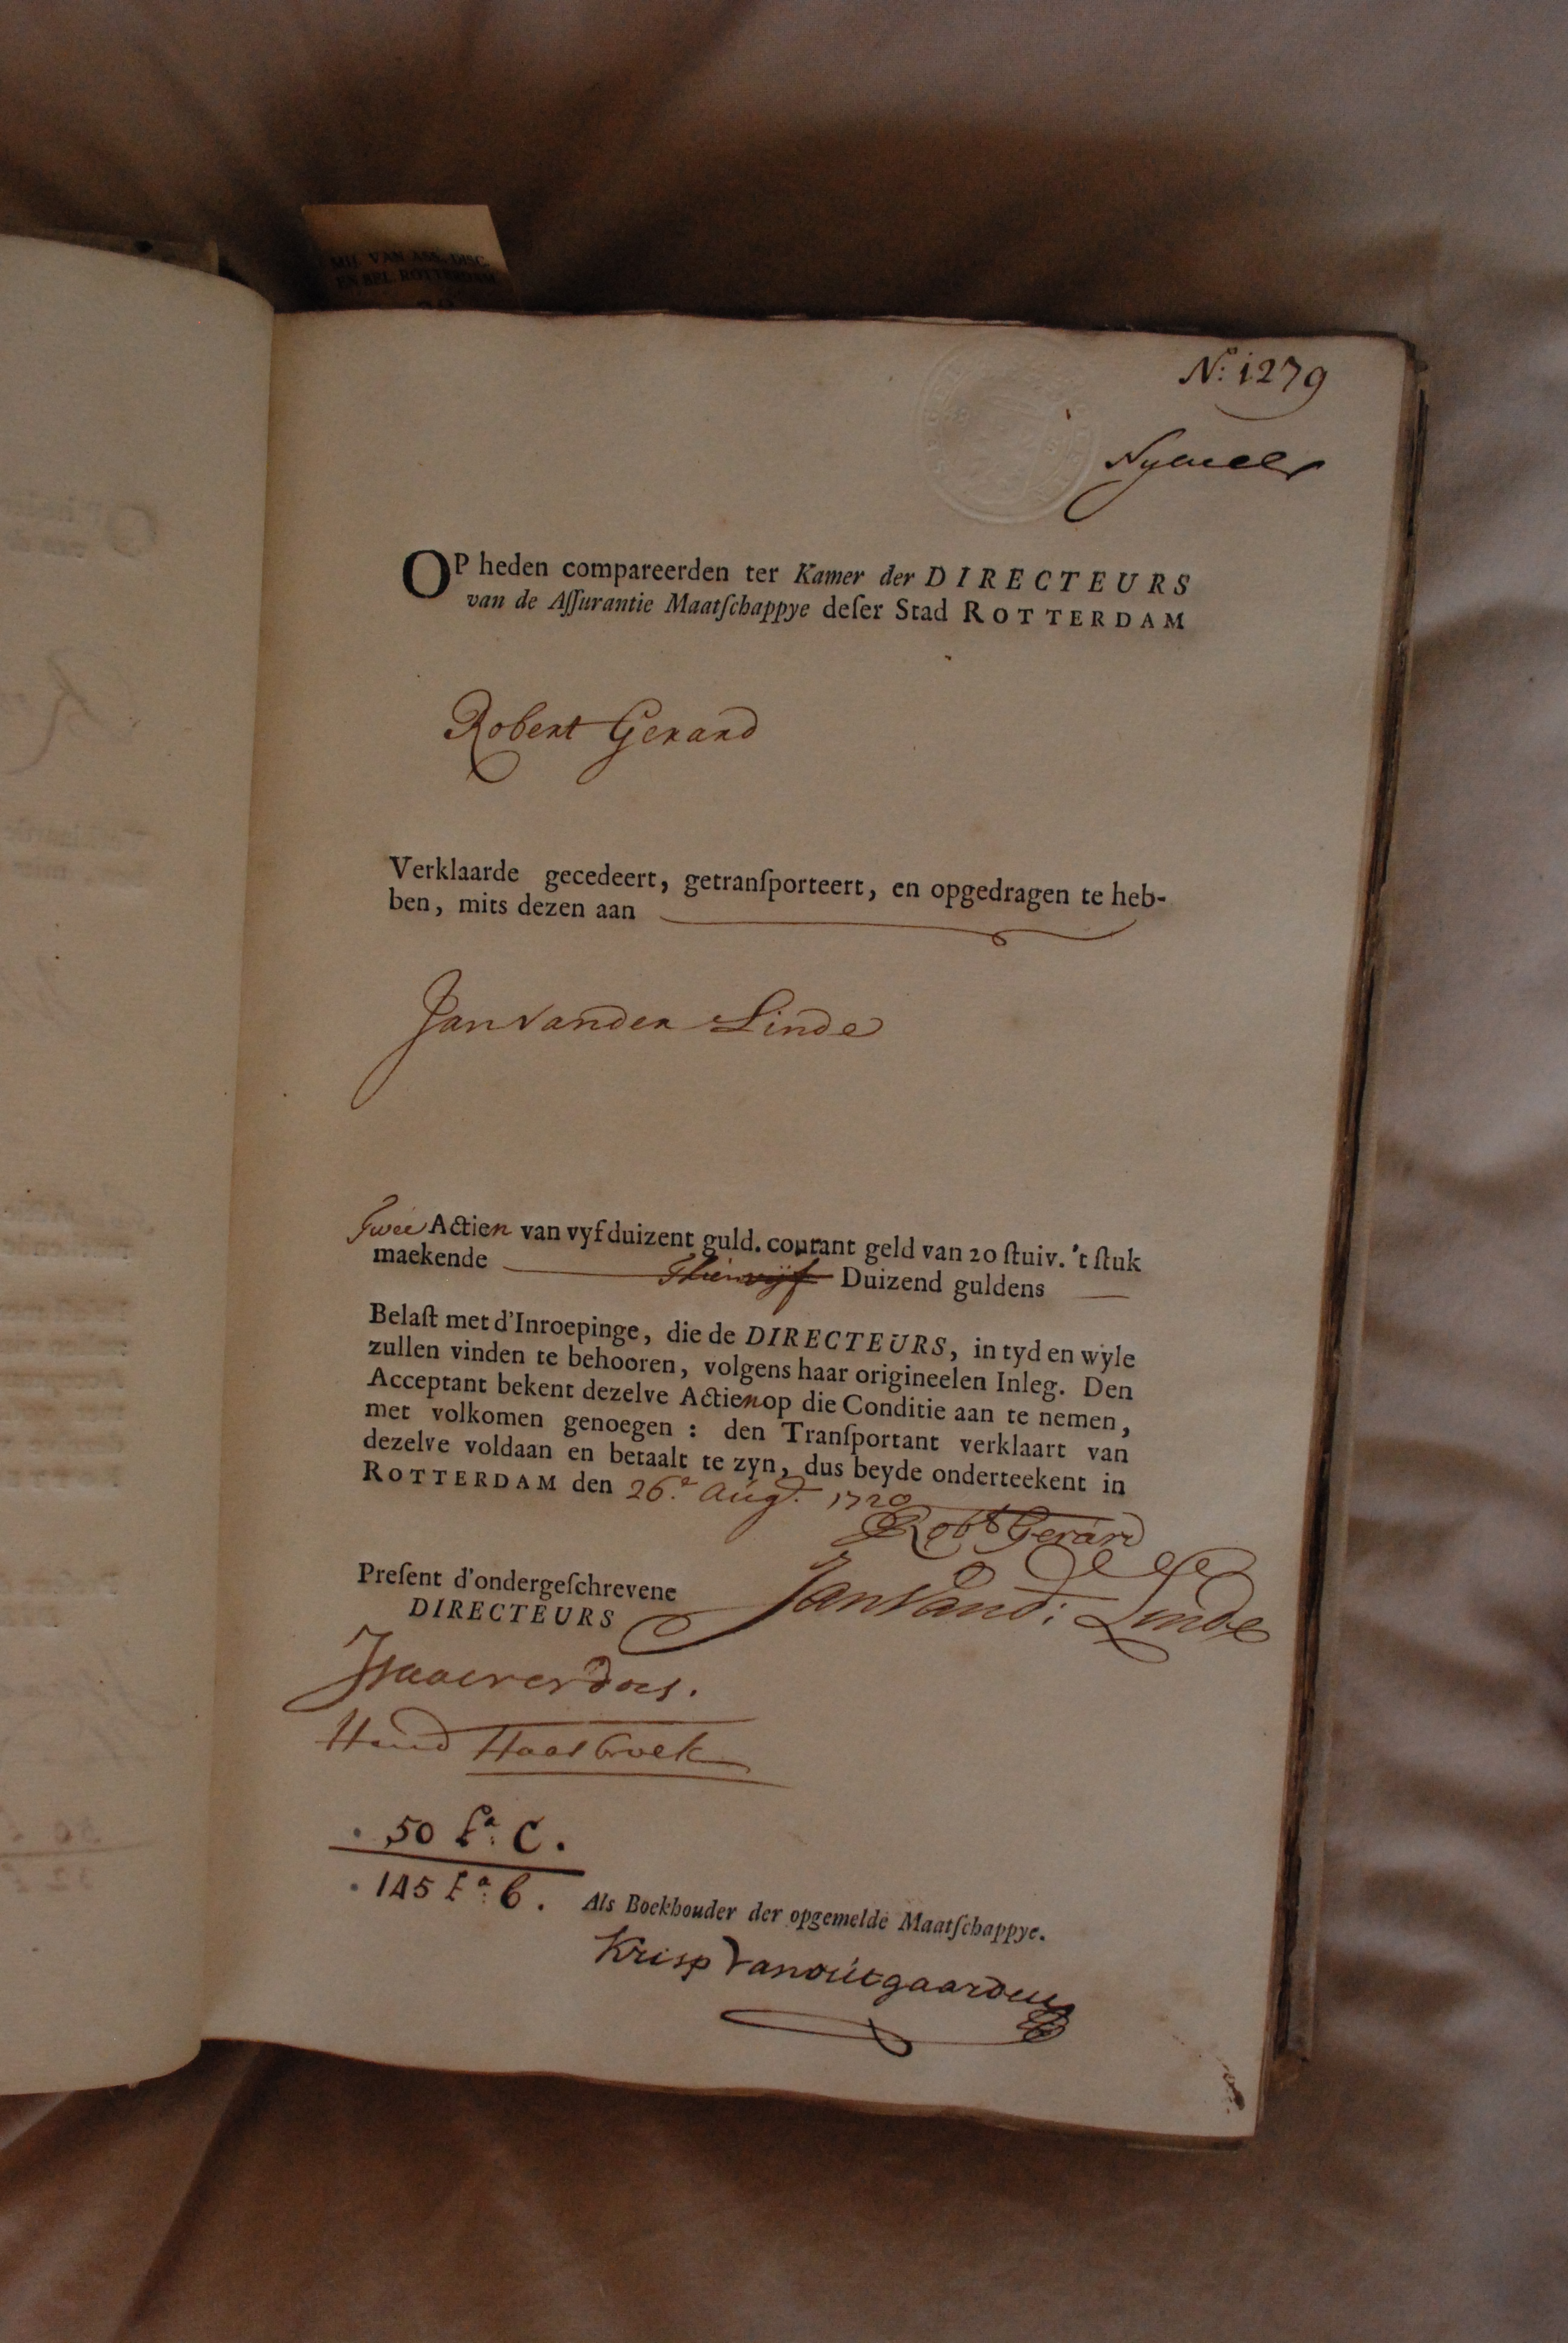 MIJ. VAN ASS. DISC.
EN BEL. ROTTERDAM
No: 1279
OP heden compareerden ter Kamer der DIRECTEURS
van de Aſſurantie Maatſchappye deſer Stad ROTTERDAM
Robert Gerard
Verklaarde gecedeert, getranſporteert, en opgedragen te heb-
ben, mits dezen aan
Jan Vander Linde
Twee Actien van vyfduizent guld. courant geld van 20 ſtuiv. 't ſtuk
maekende Thien vyf Duizend guldens
Belaſt met d'Inroepinge, die de DIRECTEURS, in tyd en wyle
zullen vinden te behooren, volgens haar origineelen Inleg. Den
Acceptant bekent dezelve Actien op die Conditie aan te nemen,
met volkomen genoegen : den Tranſportant verklaart van
dezelve voldaan en betaalt te zyn, dus beyde onderteekent in
ROTTERDAM den 26.e Aug.t 1720
Robt Gerard
Jan Vand: Linde
Preſent d'ondergeſchrevene
DIRECTEURS
Hend Haesbroek
50 fo: C.
145 fo: 6.
Als Boekhouder der opgemelde Maatſchappye.
Krisp Vanoutgaarden